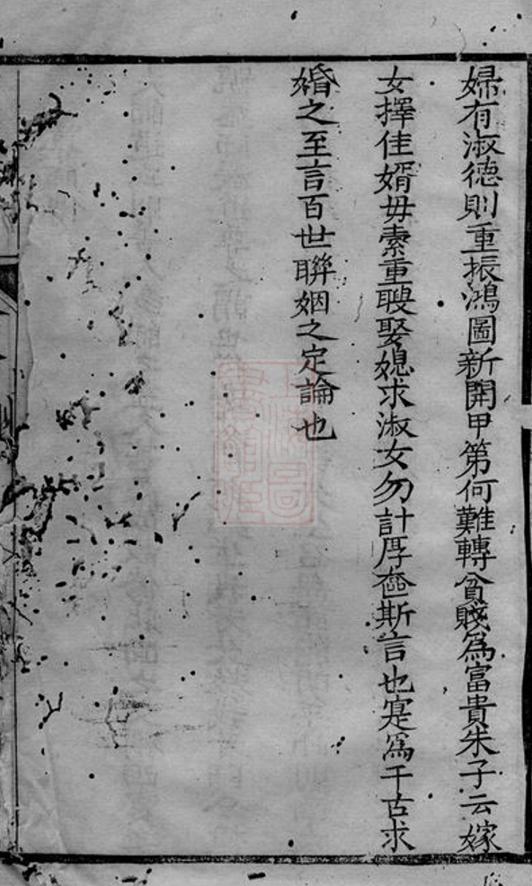 婦有淑德則重振鴻圖新開甲第何難轉貧賤爲富貴朱子云嫁
女擇佳婿毋索重聘娶媳求淑女勿計厚奩斯言也寔爲千古求
婚之至言百世聯姻之定論也